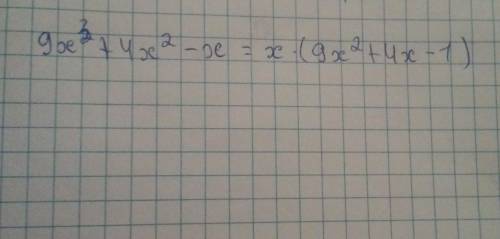 9x³ + 4x² - x = x · (9x² + 4x - 1)